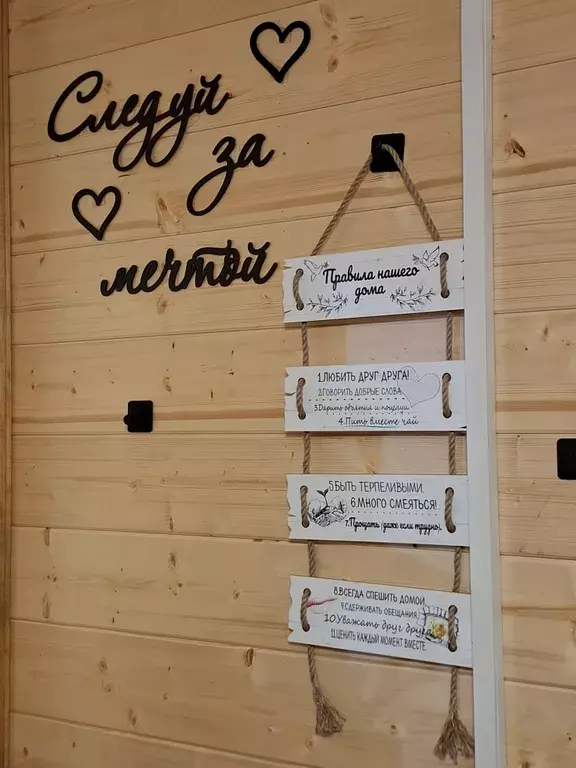 Следуй
за
мечтой
Правила нашего
дома
1.ЛЮБИТЬ ДРУГ ДРУГА!
2.ГОВОРИТЬ ДОБРЫЕ СЛОВА
3.Дарить объятия и поцелуи
4.Пить вместе чай
5.БЫТЬ ТЕРПЕЛИВЫМИ.
6.МНОГО СМЕЯТЬСЯ!
7.Прощать (даже если трудно).
8.ВСЕГДА СПЕШИТЬ ДОМОЙ
9.СДЕРЖИВАТЬ ОБЕЩАНИЯ
10.Уважать друг друга
11.ЦЕНИТЬ КАЖДЫЙ МОМЕНТ ВМЕСТЕ